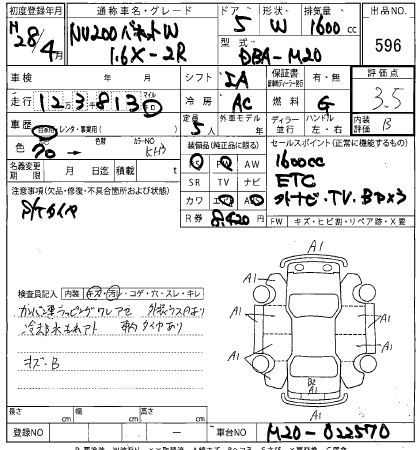 初度登録年月 通称車名・グレード ドア 形状 排気量 出品No.
H28/4月 NV200 バネットW 5 W 1600cc 596
1.6X-2R 型式 DBA-M20
車検 年 月 シフト IA 保証書 有・無 評価点
走行 123813 マイル 冷房 AC 燃料 G 3.5
車歴 自家用 レンタ・事業用( ) 定員 5人 外車モデル 年 ディーラー 並行 ハンドル 左・右 内装評価 B
色 色替 カラーNo. KH3 装備品(純正品に限る) セールスポイント(正常に機能するもの)
PS PW AW 1600cc
名義変更期限 月 日迄 積載 t SR TV ナビ ETC
注意事項(欠品・修復・不具合箇所および状態) カワ エアB ナビ・TV・
R券 8420円 FW キズ・ヒビ割・リペア跡・X要
検査員記入 内装 キズ・汚・コゲ・穴・スレ・キレ
冷却水もれアト タイヤあり
キズ・B
A1
A1 A1
A1 A1
A1 A1
B2
A1
A1
長さ cm 幅 cm 高さ cm
登録NO 車台NO M20-022570